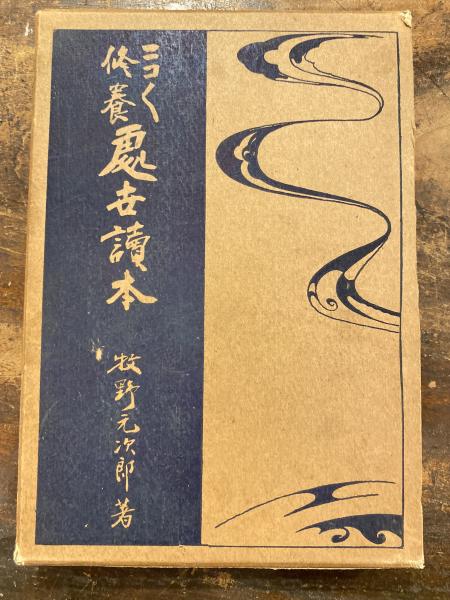 ニコ〱
修養
處世讀本
牧野元次郎 著